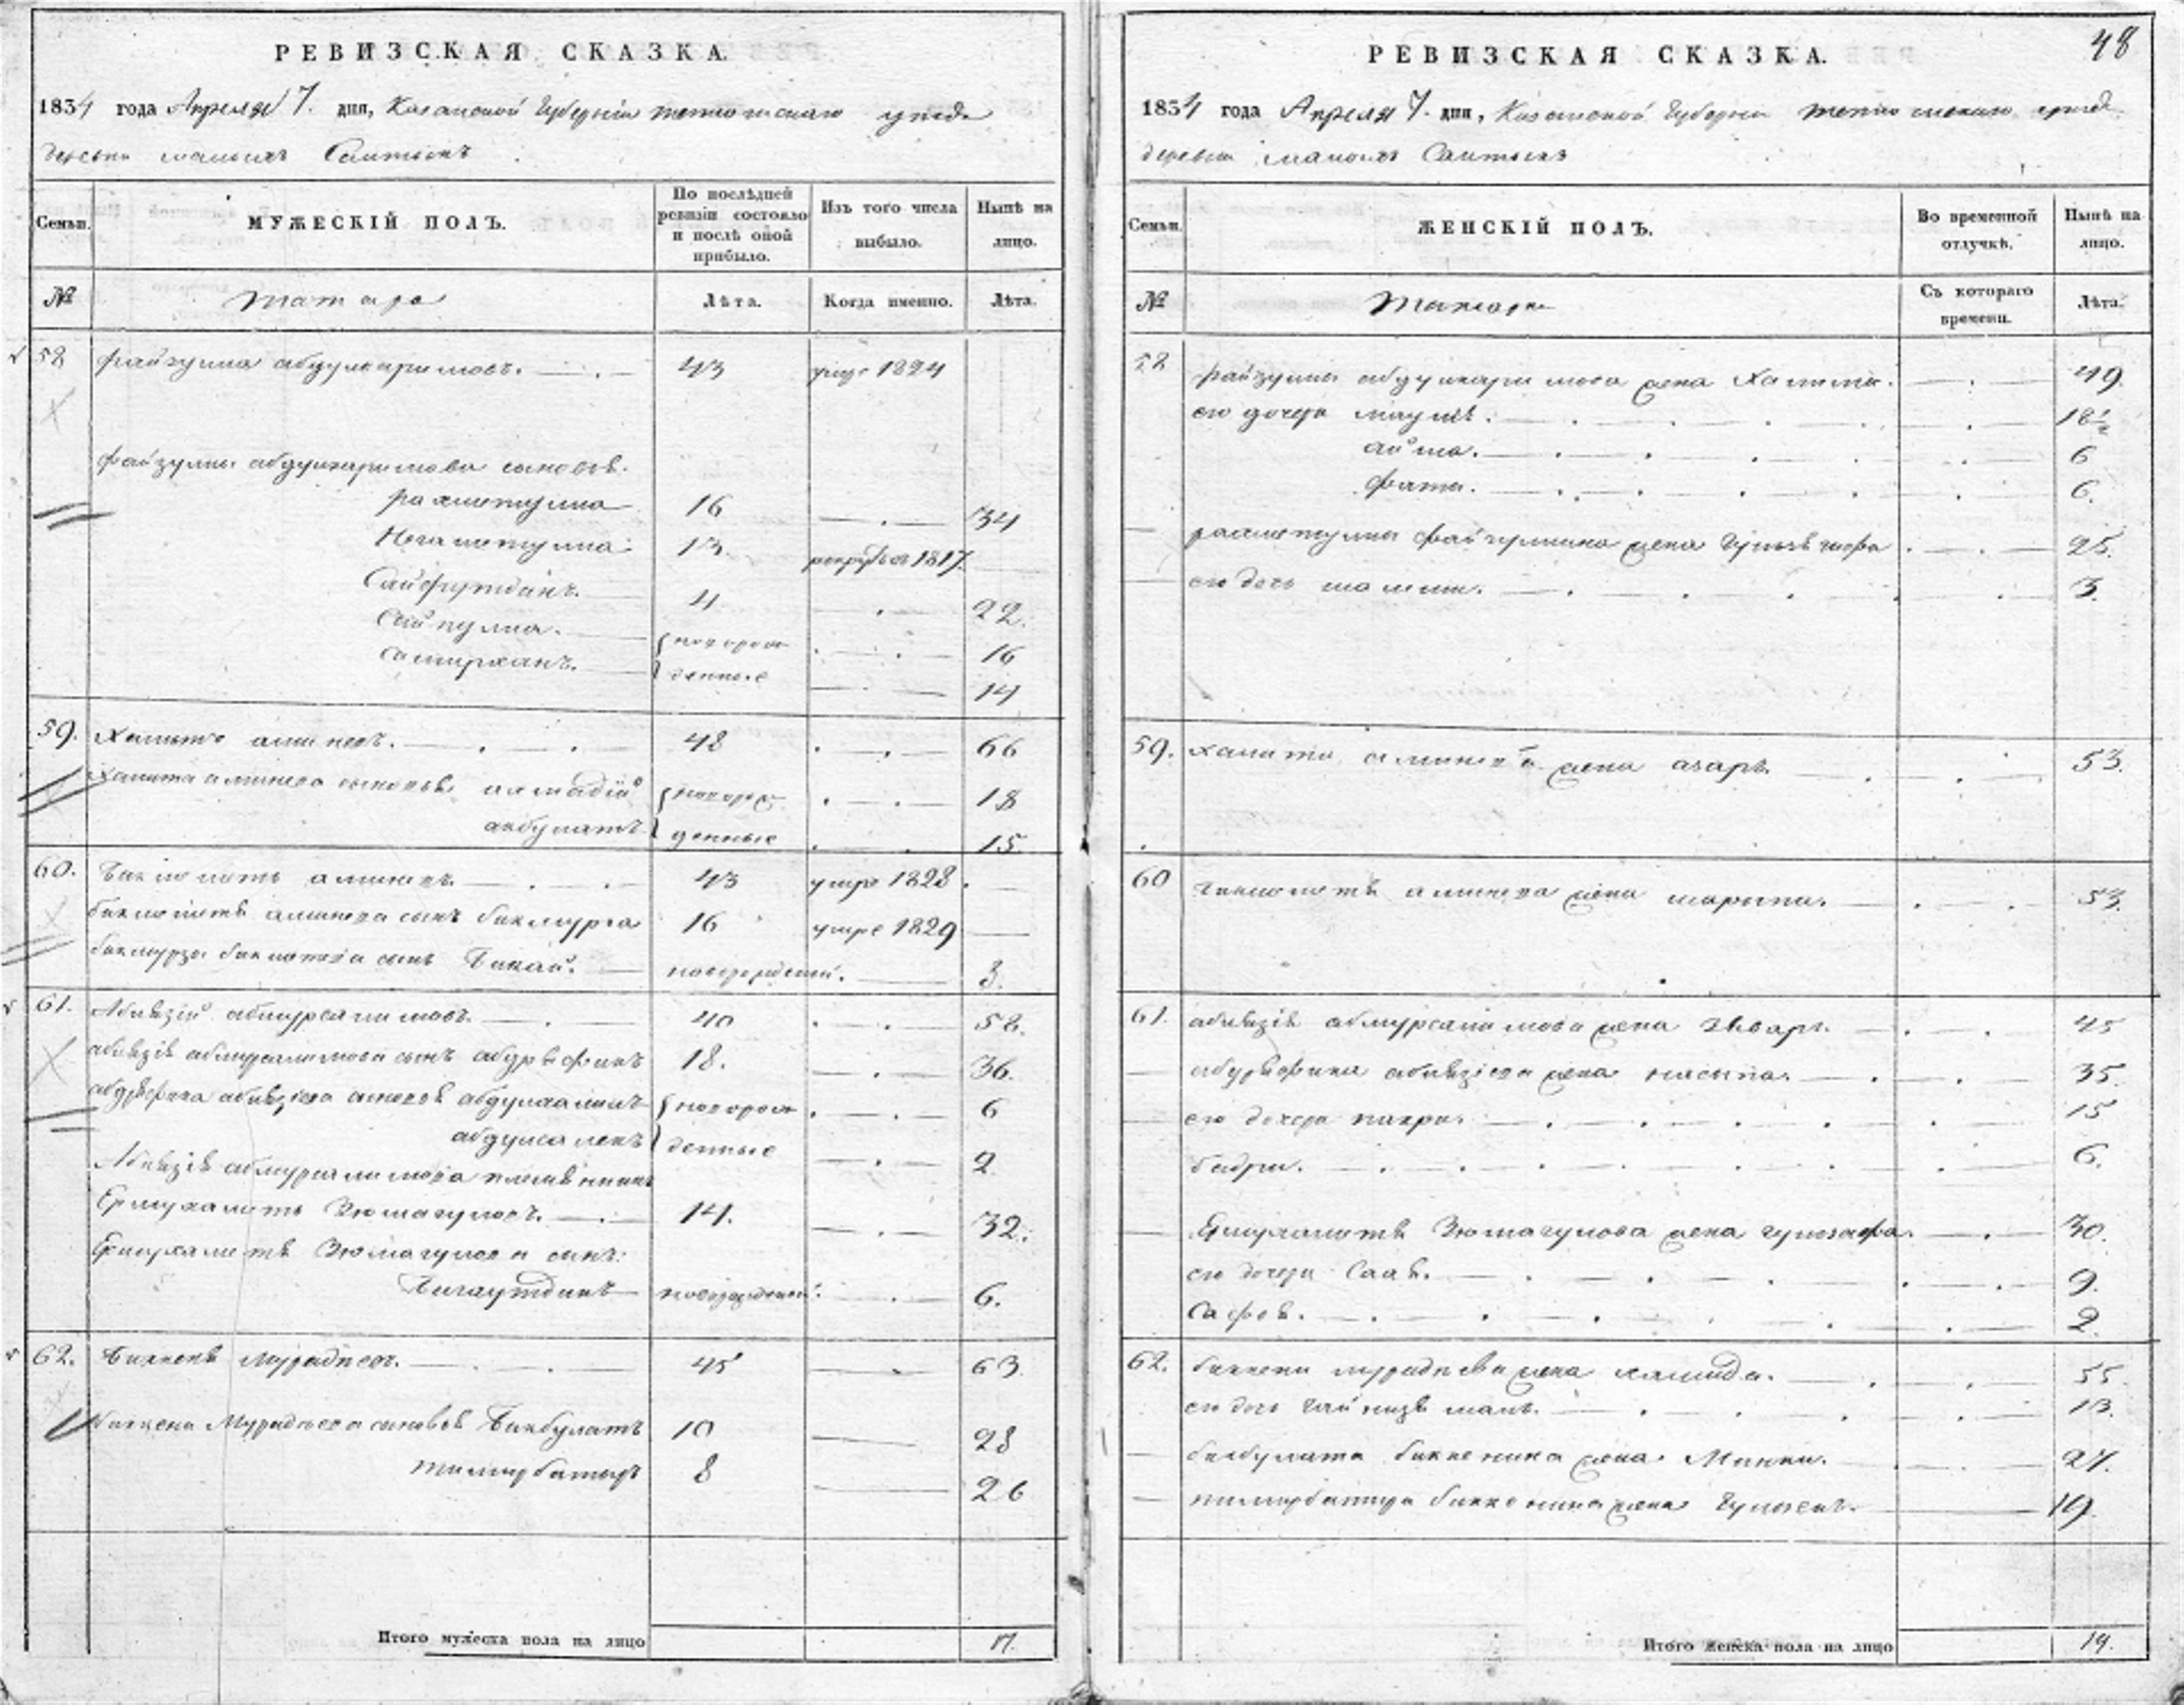 РЕВИЗСКАЯ СКАЗКА.
1834 года Апреля 7. дня, Казанской Губернии тетюшскаго уезда
деревни малыхъ Саитыкъ
Семьи.
МУЖЕСКІЙ ПОЛЪ.
По послѣдней ревизіи состояло и послѣ оной прибыло.
Изъ того числа выбыло.
Нынѣ на лицо.
№
татара
Лѣта.
Когда именно.
Лѣта.
58 файзулла абдулкаримовъ. 43 умре 1824
файзуллы абдулкаримова сыновья
рахметулла 16 34
Негаметулла 13 рекруты 1817
Сайфутдинъ. 4 22.
Сайпулла. новорож 16
Самирханъ. денные 14
59. Халитъ аминевъ. 48 66
Халита аминева сыновья ахмадій новорож 18
акбулатъ денные 15
60. Бикметъ аминевъ. 43 умре 1828.
бикметя аминева сынъ бикмурза 16 умре 1829
бикмурзы бикметева сынъ Бикай. новорожденный. 3.
61. Абълзій абмурсалимовъ. 40 58.
абълзія абмурсалимова сынъ абдрефикъ 18. 36.
абдрефика абълзіева сыновья абдулхаликъ новорож 6
абдулсалекъ денные 2
Абълзія абмурсалимова племянникъ
Ермухаметъ Зюмагуловъ. 14. 32.
Ермухаметя Зюмагулова сынъ
Бигаутдинъ новорожденный. 6.
62. Биккеня Мурадневъ. 45 63
Биккени Мураднева сыновья Бикбулатъ 10 28
тимирбатыръ 8 26
Итого мужеска пола на лицо 17.
48
РЕВИЗСКАЯ СКАЗКА.
1834 года Апреля 7. дня, Казанской Губернии тетюшскаго уезда
деревни малыхъ Саитыкъ
Семьи.
ЖЕНСКІЙ ПОЛЪ.
Во временной отлучкѣ.
Нынѣ на лицо.
№
Съ котораго времени.
Лѣта.
58 файзуллы абдулкаримова жена Халима. 49
его дочери 18½
айша. 6
фати. 6.
рахметуллы файзуллина жена 25.
его дочь 3.
59. халита аминева жена азарь. 53.
60 бикметя аминева жена шарыпа. 53.
61. абълзія абмурсалимова жена 45
абдрефика абълзіева жена насыпа. 35.
его дочери пахри. 15
бадри. 6.
Ермухаметя Зюмагулова жена гулзафа. 30.
его дочери Саав. 9.
Сафов. 2.
62. биккени мураднева жена хамида. 55.
его дочь 13.
бикбулата биккенина жена Минки. 27.
тимирбатыра биккенина жена 19.
Итого женска пола на лицо 19.